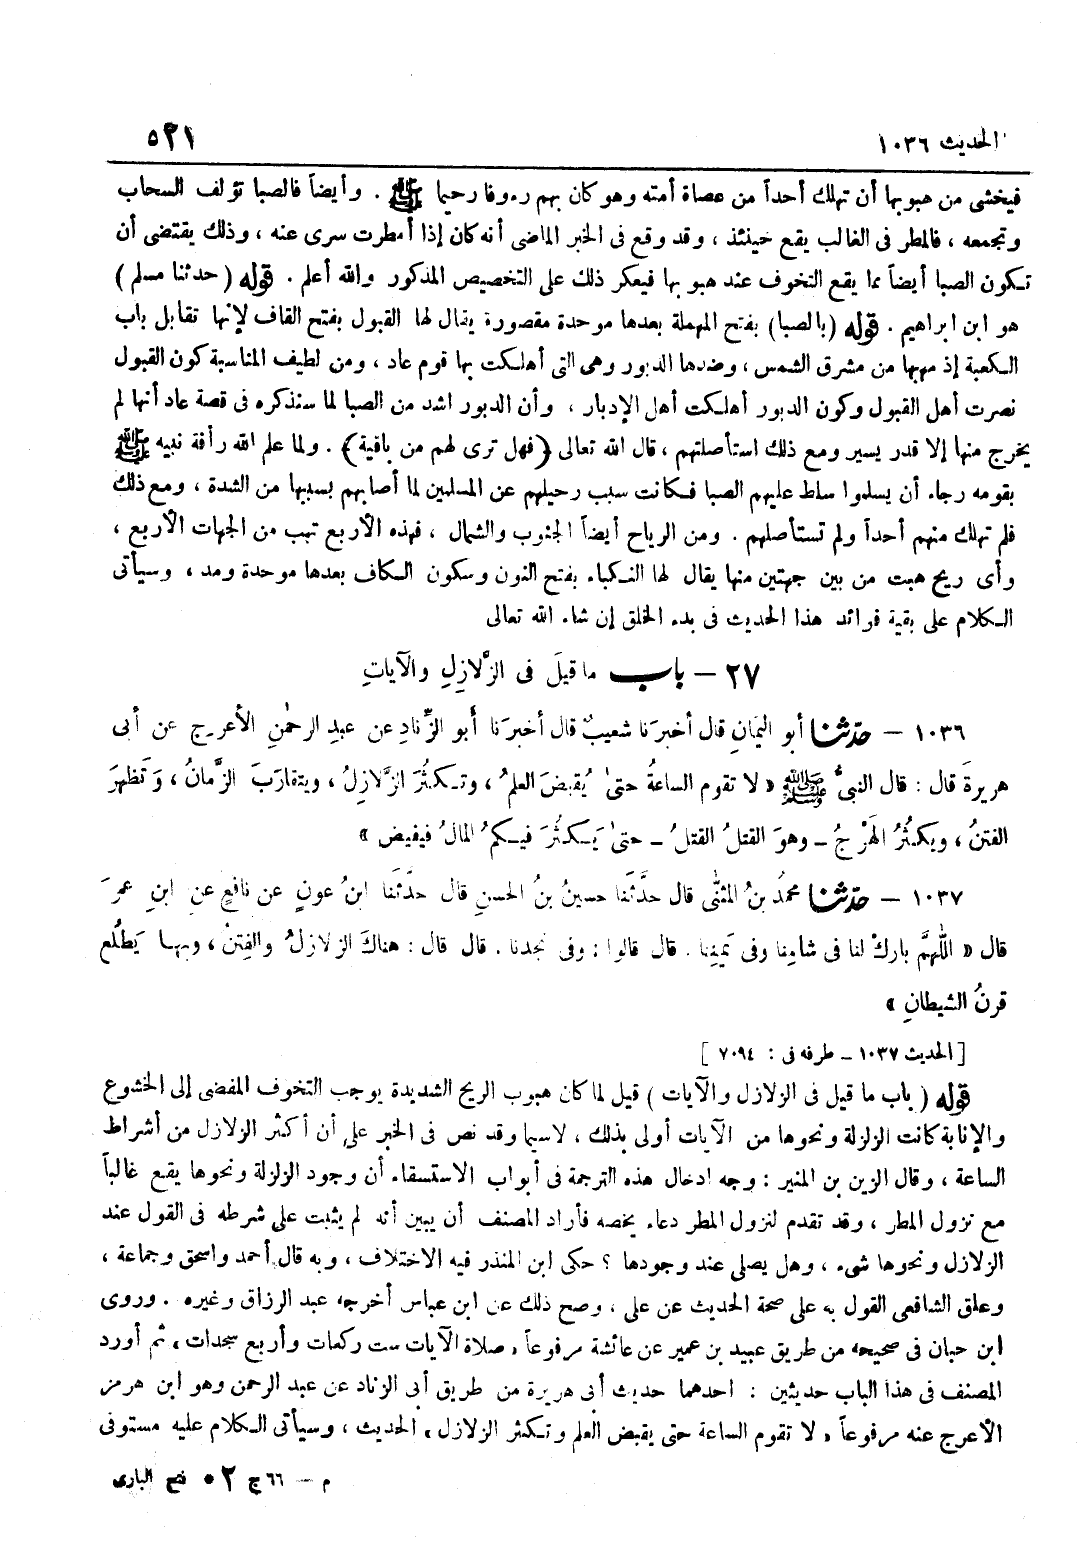 الحديث ١٠٣٦
٥٢١
فيخشى من هبوبها أن تهلك أحداً من عصاة أمته وهو كان بهم رءوفا رحيما ﷺ . وأيضاً فالصبا تؤلف السحاب
وتجمعه ، فالمطر فى الغالب يقع حينئذ ، وقد وقع فى الخبر الماضى أنه كان إذا أمطرت سرى عنه ، وذلك يقتضى أن
تكون الصبا أيضاً مما يقع التخوف عند هبوبها فيعكر ذلك على التخصيص المذكور والله أعلم . قوله ( حدثنا مسلم )
هو ابن ابراهيم . قوله (بالصبا) بفتح المهملة بعدها موحدة مقصورة يقال لها القبول بفتح القاف لإنها تقابل باب
الكعبة إذ مهبها من مشرق الشمس ، وضدها الدبور وهى التى أهلكت بها قوم عاد ، ومن لطيف المناسبة كون القبول
نصرت أهل القبول وكون الدبور أهلكت أهل الإدبار ، وأن الدبور اشد من الصبا لما سنذكره فى قصة عاد أنها لم
يخرج منها إلا قدر يسير ومع ذلك استأصلتهم ، قال الله تعالى ﴿فهل ترى لهم من باقية﴾ . ولما علم الله رأفة نبيه ﷺ
بقومه رجاء أن يسلموا سلط عليهم الصبا فكانت سبب رحيلهم عن المسلمين لما أصابهم بسببها من الشدة ، ومع ذلك
فلم تهلك منهم أحداً ولم تستأصلهم . ومن الرياح أيضاً الجنوب والشمال ، فهذه الأربع تهب من الجهات الأربع ،
وأى ريح هبت من بين جهتين منها يقال لها النكباء بفتح النون وسكون الكاف بعدها موحدة ومد ، وسيأتى
الكلام على بقية فوائد هذا الحديث فى بدء الخلق إن شاء الله تعالى
٢٧ – باب ما قيلَ فى الزَّلازِلِ والآياتِ
١٠٣٦ – حدّثنا أبو اليَمانِ قال أخبرَنا شعيبٌ قال أخبرَنا أبو الزِّنادِ عن عبدِ الرحمٰنِ الأعرجِ عن أبى
هريرةَ قال : قال النبىُّ ﷺ « لا تقومُ الساعةُ حتىٰ يُقبضَ العلمُ ، وتكثُرَ الزَّلازِلُ ، ويتقارَبَ الزَّمانُ ، وَتَظهرَ
الفتنُ ، ويكثُرُ الهَرْجُ – وهوَ القتلُ القتلُ – حتىٰ يَكثُرَ فيكمُ المالُ فيفيض »
١٠٣٧ – حدّثنا محمدُ بنُ المثنّٰى قال حدَّثَنا حسينُ بنُ الحسنِ قال حدَّثَنا ابنُ عونٍ عن نافعٍ عنِ ابنِ عمرَ
قال « اللّٰهمَّ بارِكْ لنا فى شامِنا وفى يَمنِنا . قال قالوا : وفى نجدنا . قال قال : هناكَ الزلازلُ والفِتنُ ، وبها يَطلُع
قرنُ الشيطانِ »
[ الحديث ١٠٣٧ – طرفه فى : ٧٠٩٤ ]
قوله ( باب ما قيل فى الزلازل والآيات ) قيل لما كان هبوب الريح الشديدة يوجب التخوف المفضى إلى الخشوع
والإنابة كانت الزلزلة ونحوها من الآيات أولى بذلك ، لاسيما وقد نص فى الخبر على أن أكثر الزلازل من أشراط
الساعة ، وقال الزين بن المنير : وجه ادخال هذه الترجمة فى أبواب الاستسقاء أن وجود الزلزلة ونحوها يقع غالباً
مع نزول المطر ، وقد تقدم لنزول المطر دعاء يخصه فأراد المصنف أن يبين أنه لم يثبت على شرطه فى القول عند
الزلازل ونحوها شىء ، وهل يصلى عند وجودها ؟ حكى ابن المنذر فيه الاختلاف ، وبه قال أحمد واسحق وجماعة ،
وعلق الشافعى القول به على صحة الحديث عن على ، وصح ذلك عن ابن عباس أخرجه عبد الرزاق وغيره . وروى
ابن حبان فى صحيحه من طريق عبيد بن عمير عن عائشة مرفوعاً « صلاة الآيات ست ركعات وأربع سجدات » ثم أورد
المصنف فى هذا الباب حديثين : احدهما حديث أبى هريرة من طريق أبى الزناد عن عبد الرحمن وهو ابن هرمز
الأعرج عنه مرفوعاً « لا تقوم الساعة حتى يقبض العلم وتكثر الزلازل » الحديث ، وسيأتى الكلام عليه مستوفى
م – ٦٦ ج ٢ • فتح البارى